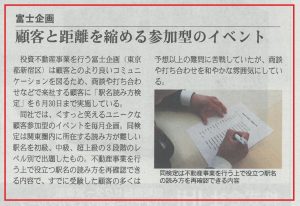 富士企画
顧客と距離を縮める参加型のイベント
投資不動産事業を行う富士企画(東京
都新宿区)は顧客とのより良いコミュニ
ケーションを図るため、商談や打ち合わ
せなどで来社する顧客に「駅名読み方検
定」を6月30日まで実施している。
同社では、くすっと笑えるユニークな
顧客参加型のイベントを毎月企画。同検
定は関東圏内に所在する読み方が難しい
駅名を初級、中級、超上級の3段階のレ
ベル別で出題したもの。不動産事業を行
う上で役立つ駅名の読み方を再確認でき
る内容で、すでに受験した顧客の多くは
予想以上の難問に苦戦していたが、商談
や打ち合わせを和やかな雰囲気にしてい
る。
同検定は不動産事業を行う上で役立つ駅名
の読み方を再確認できる内容